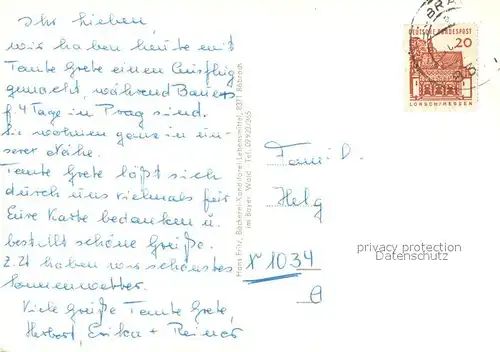 Ihr lieben
wir haben heute mit
Tante Grete einen Ausflug
gemacht, während Bauers
f. 4 Tage in Prag sind.
Sie wohnen ganz in un-
serer Nähe.
Tante Grete läßt sich
durch uns vielmals für
Eure Karte bedanken u.
bestellt schöne Grüße.
z. Zt haben wir schönstes
Sonnenwetter.
Viele Grüße Tante Grete,
Herbert, Erika + Reiner
Hans Fritz, Bäckerei-Konditorei-Lebensmittel, 8371
im Bayer. Wald Tel. 09920/265
DEUTSCHE BUNDESPOST
20
LORSCH/HESSEN
Famil.
Helg
privacy protection
Datenschutz
1034